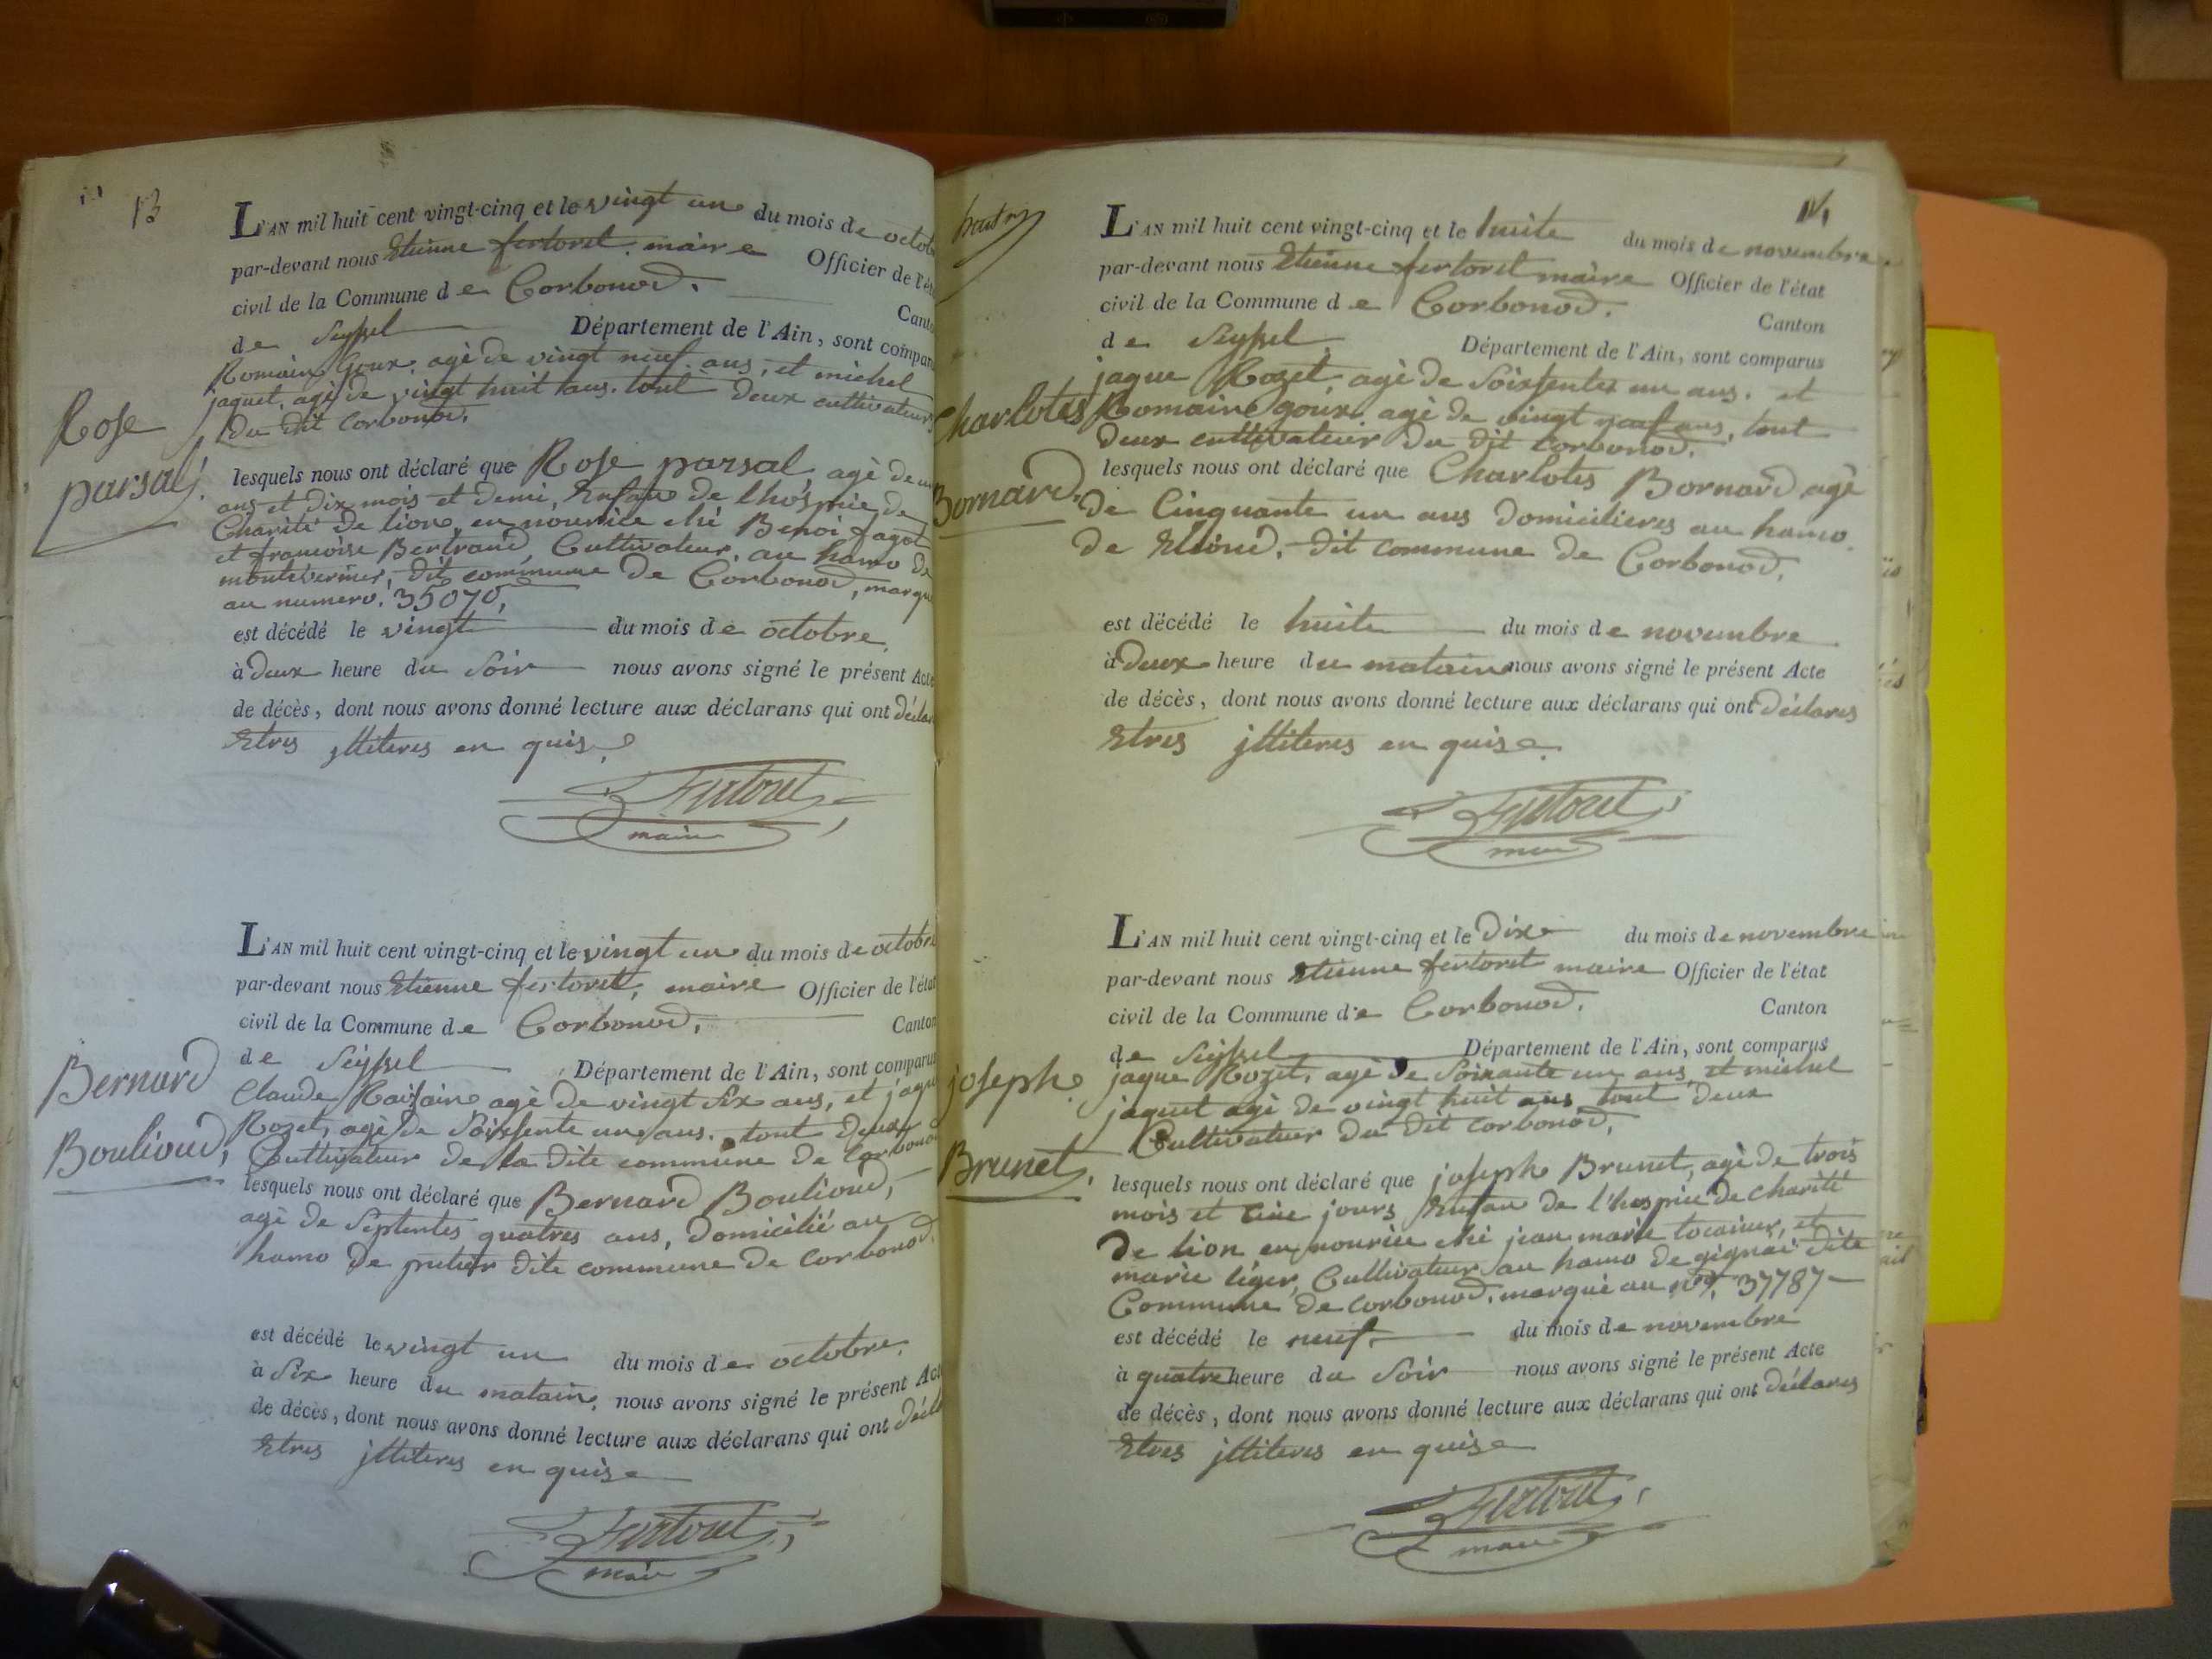 13
L'AN mil huit cent vingt-cinq et le vingt un du mois de octob
par-devant nous Etienne fertoret maire Officier de l'ét
civil de la Commune de Corbonod. Cant
de Seyssel Département de l'Ain, sont compar
Romain Goux, agè de vingt neuf ans, et michel
jaquet, agè de vingt huit ans. tout deux cultivateur
du dit Corbonod.
Rose
parsal.
lesquels nous ont déclaré que Rose parsal agè de un
ans et dix mois et demi, Enfan de lhospice de
Charité de lion en nourrice ché Benoi fagot
et francoise Bertrand, Cultivateur, au hamo de
dit commune de Corbonod, marqu
au numero. 35070,
est décédé le vingt du mois de octobre
à deux heure du Soir nous avons signé le présent Acte
de décès, dont nous avons donné lecture aux déclarans qui ont déclar
Etres jlliteres en quise
Fertoret
maire
L'AN mil huit cent vingt-cinq et le vingt un du mois de octobre
par-devant nous Etienne fertoret, maire Officier de l'état
civil de la Commune de Corbonod, Canton
de Seyssel Département de l'Ain, sont comparus
Claude agè de vingt Six ans, et jaque
Rozet, agè de Soissente un ans. tout deux
Cultivateur de la dite commune de Corbonod
Bernard
Boulioud,
lesquels nous ont déclaré que Bernard Boulioud,
agè de Septentes quatres ans, domicilié au
hamo de dite commune de Corbonod.
est décédé le vingt un du mois de octobre.
à Six heure du matain, nous avons signé le présent Act
de décès, dont nous avons donné lecture aux déclarans qui ont décla
Etres jlliteres en quise
Fertoret
mair
14
L'AN mil huit cent vingt-cinq et le huite du mois de novembre
par-devant nous Etienne fertoret maire Officier de l'état
civil de la Commune de Corbonod. Canton
de Seyssel Département de l'Ain, sont comparus
jaque Rozet, agè de Soissentes un ans. et
Romain goux agè de vingt neuf ans, tout
deux cultivateur du dit Corbonod.
Charlotes
Bornard,
lesquels nous ont déclaré que Charlotes Bornard agè
de Cinquante un ans domicilieres au hamo
de dit commune de Corbonod.
est décédé le huite du mois de novembre
à deux heure du matain nous avons signé le présent Acte
de décès, dont nous avons donné lecture aux déclarans qui ont déclares
Etres jlliteres en quise
Fertoret
maire
L'AN mil huit cent vingt-cinq et le dix du mois de novembre
par-devant nous Etienne fertoret maire Officier de l'état
civil de la Commune de Corbonod. Canton
de Seyssel Département de l'Ain, sont comparus
jaque Rozet, agè de Soixante un ans et michel
jaquet agè de vingt huit ans tout deux
Cultivateur du dit Corbonod,
joseph
Brunet,
lesquels nous ont déclaré que joseph Brunet, agè de trois
mois et jours Enfan de l'hospice de Charité
de lion en nourice ché jean marie et
marie liger, Cultivateur au hamo de gignai dite
Commune de Corbonod. marqué au no. 37787
est décédé le neuf du mois de novembre
à quatre heure du Soir nous avons signé le présent Acte
de décès, dont nous avons donné lecture aux déclarans qui ont déclares
Etres jlliteres en quise
Fertoret
maire